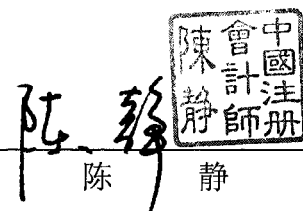 中國注册
會計師
陳静
陈静
陈 静